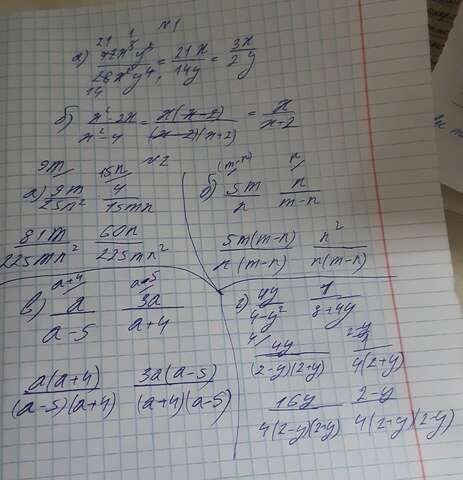 №1
а) 42x³y³ / 28x²y⁴ = 21x / 14y = 3x / 2y
б) x²-2x / x²-4 = x(x-2) / (x-2)(x+2) = x / x-2
№2
а) 9m/ 9m / 25n² 15n/ 4 / 15mn
81m / 225mn² 60n / 225mn²
б) (m-n)/ 5m / n n/ n / m-n
5m(m-n) / n(m-n) n² / n(m-n)
в) a+4/ a / a-5 a-5/ 3a / a+4
a(a+4) / (a-5)(a+4) 3a(a-5) / (a+4)(a-5)
г) 4y / 4-y² 1 / 8+4y
4/ 4y / (2-y)(2+y) 2-y/ 1 / 4(2+y)
16y / 4(2-y)(2-y) 2-y / 4(2-y)(2-y)